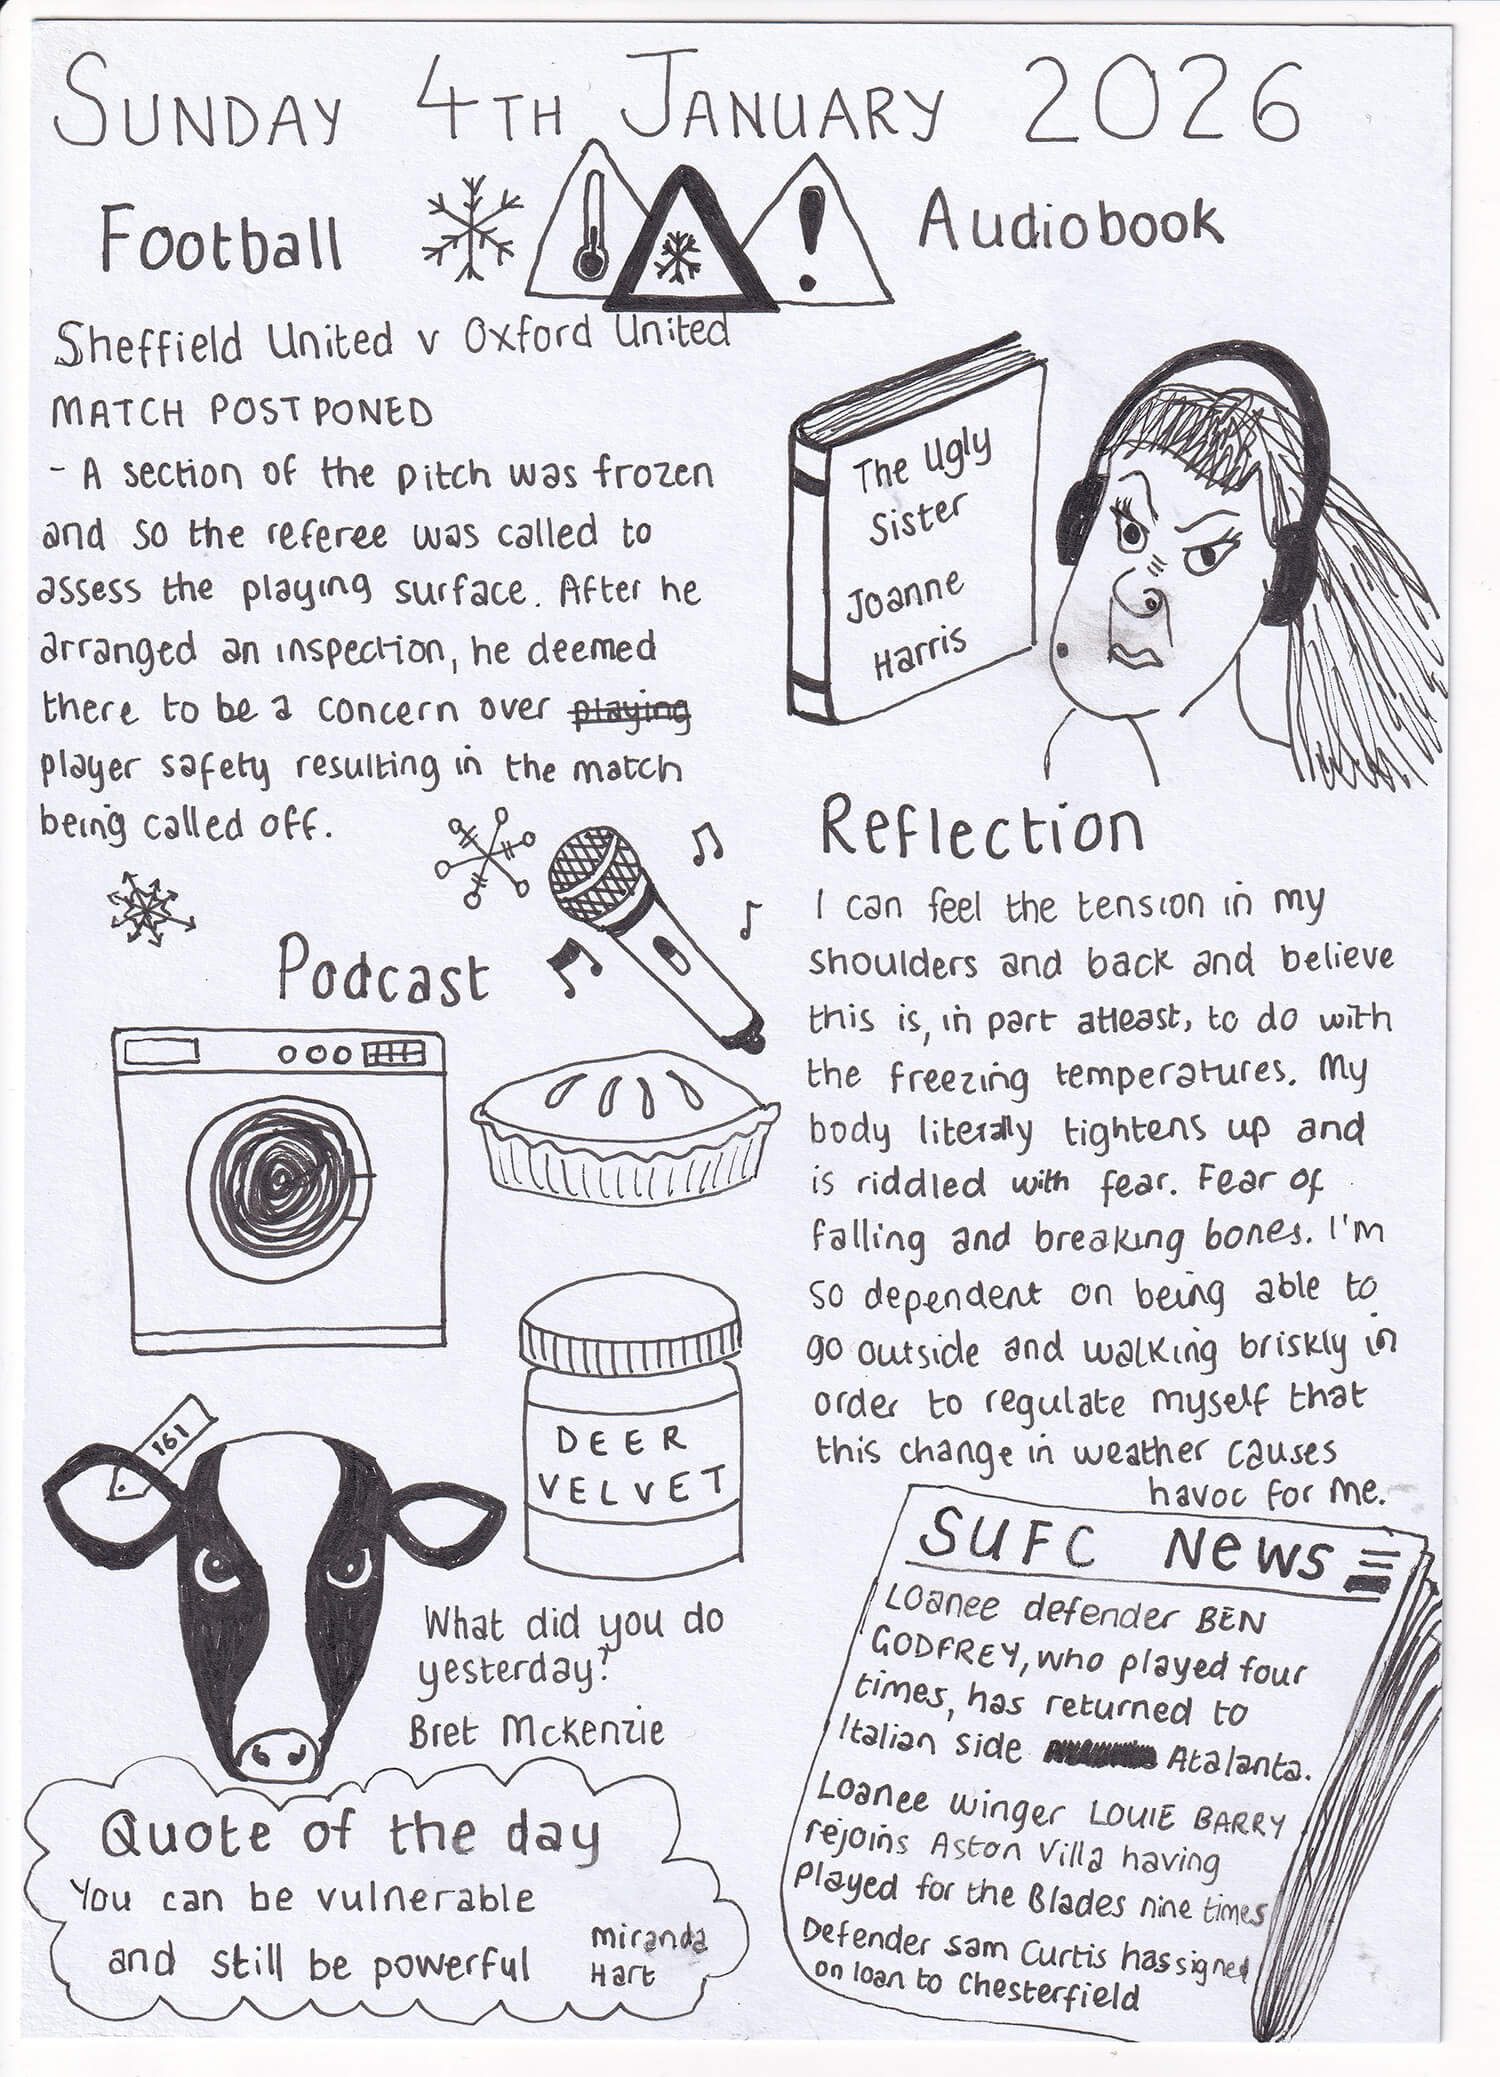 SUNDAY 4TH JANUARY 2026
Football
Sheffield United v Oxford United
MATCH POSTPONED
- A section of the pitch was frozen
and so the referee was called to
assess the playing surface. After he
arranged an inspection, he deemed
there to be a concern over playing
player safety resulting in the match
being called off.
Audiobook
The Ugly
Sister
Joanne
Harris
Podcast
DEER
VELVET
161
What did you do
yesterday?
Bret McKenzie
Reflection
I can feel the tension in my
shoulders and back and believe
this is, in part atleast, to do with
the freezing temperatures. My
body literally tightens up and
is riddled with fear. Fear of
falling and breaking bones. I'm
so dependent on being able to
go outside and walking briskly in
order to regulate myself that
this change in weather causes
havoc for me.
Quote of the day
You can be vulnerable
and still be powerful
Miranda
Hart
SUFC NEWS
Loanee defender BEN
GODFREY, who played four
times, has returned to
Italian side Atalanta.
Loanee winger LOUIE BARRY
rejoins Aston Villa having
Played for the Blades nine times
Defender Sam Curtis has signed
on loan to Chesterfield